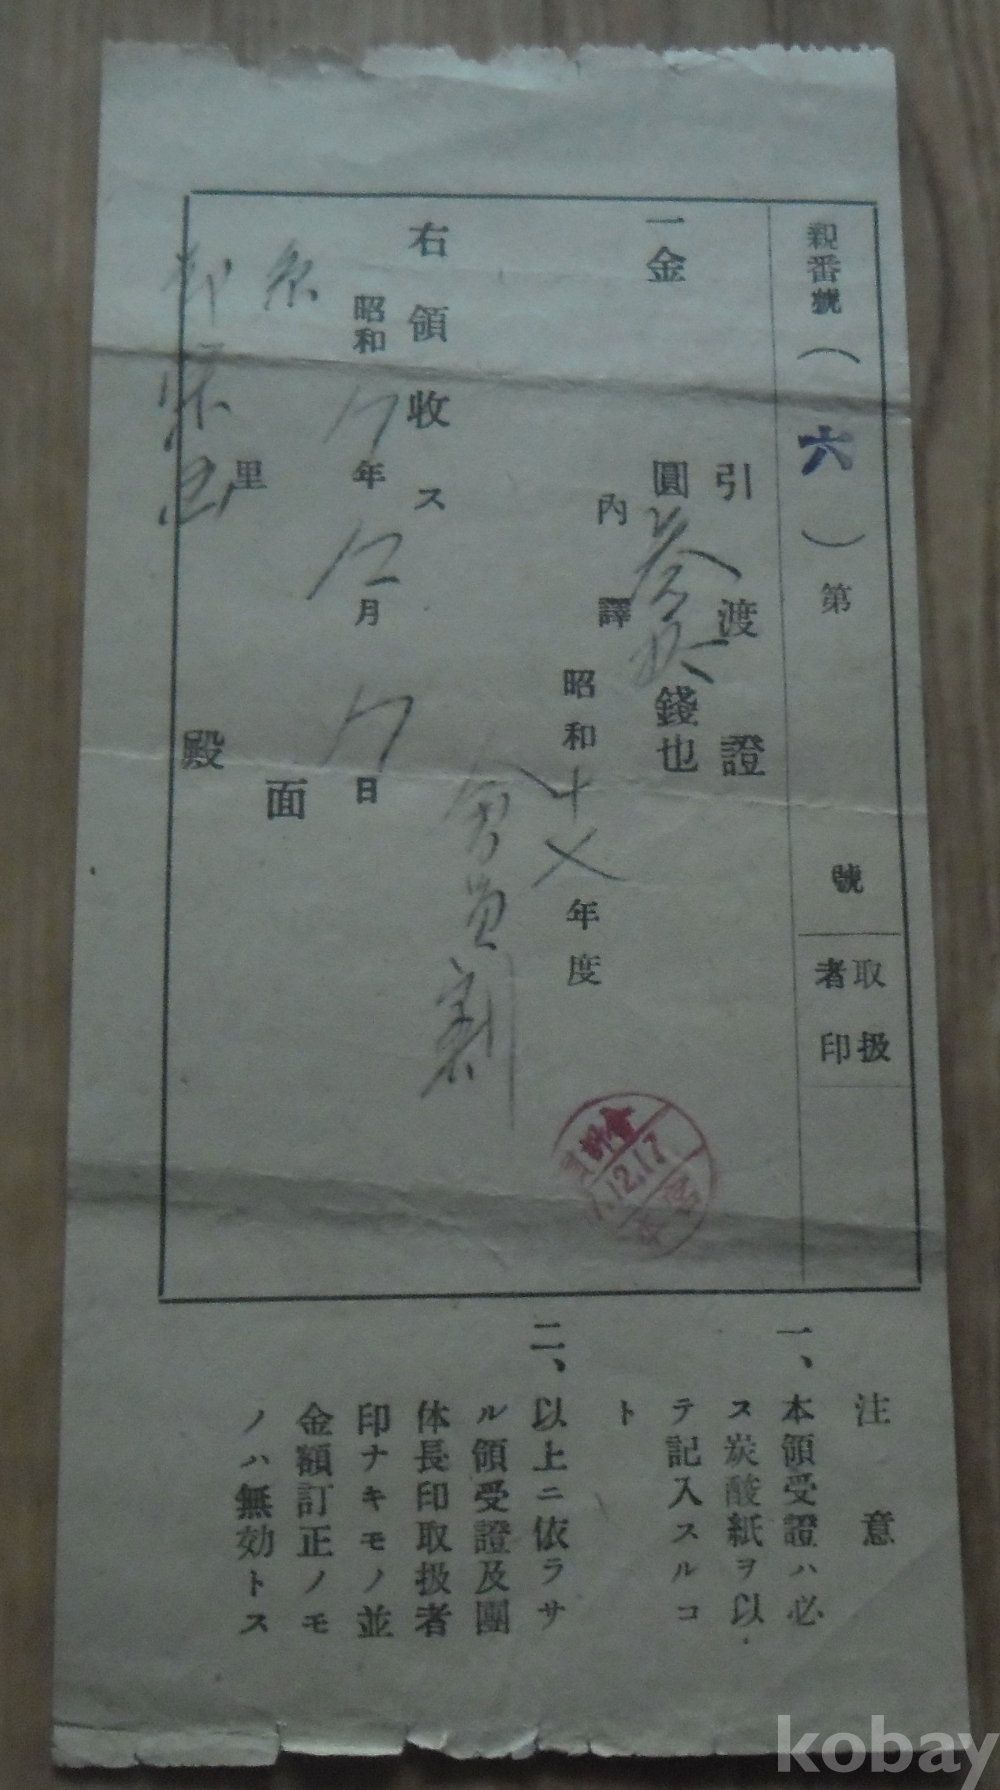 親番號（六）第 號 取扱者印
引渡證
一金 圓 錢也
內譯
昭和十七年度
會員割
右領收ス
昭和17年12月17日
面
里
殿
12.17
注意
一、本領受證ハ必
ス炭酸紙ヲ以
テ記入スルコ
ト
二、以上ニ依ラサ
ル領受證及團
体長印取扱者
印ナキモノ並
金額訂正ノモ
ノハ無効トス
kobay